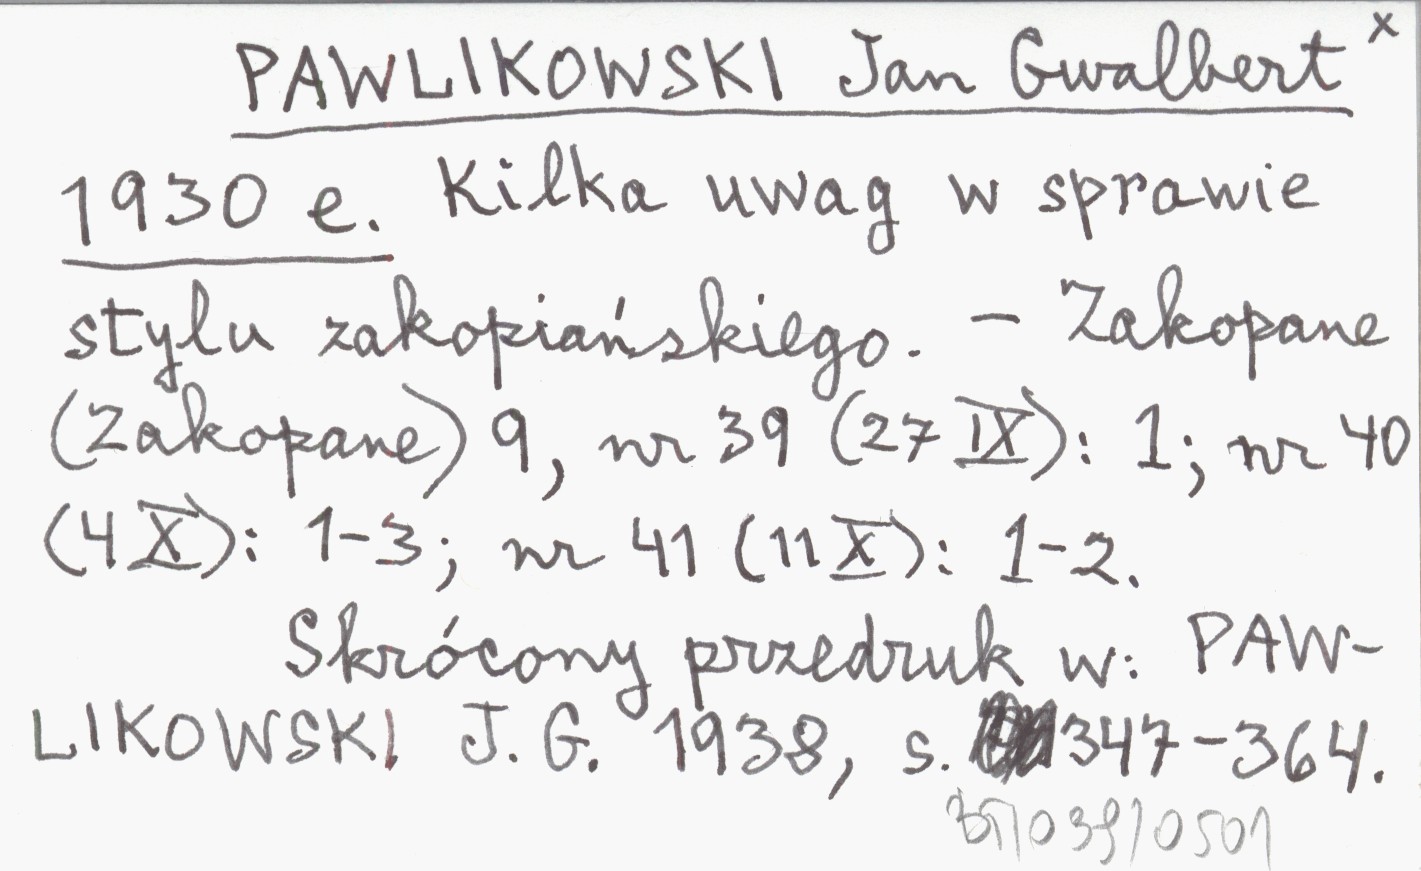 PAWLIKOWSKI Jan Gwalbert x
1930 e. Kilka uwag w sprawie
stylu zakopiańskiego. – Zakopane
(Zakopane) 9, nr 39 (27 IX): 1; nr 40
(4 X): 1-3; nr 41 (11 X): 1-2.
Skrócony przedruk w: PAW-
LIKOWSKI J. G. 1938, s. 347-364.